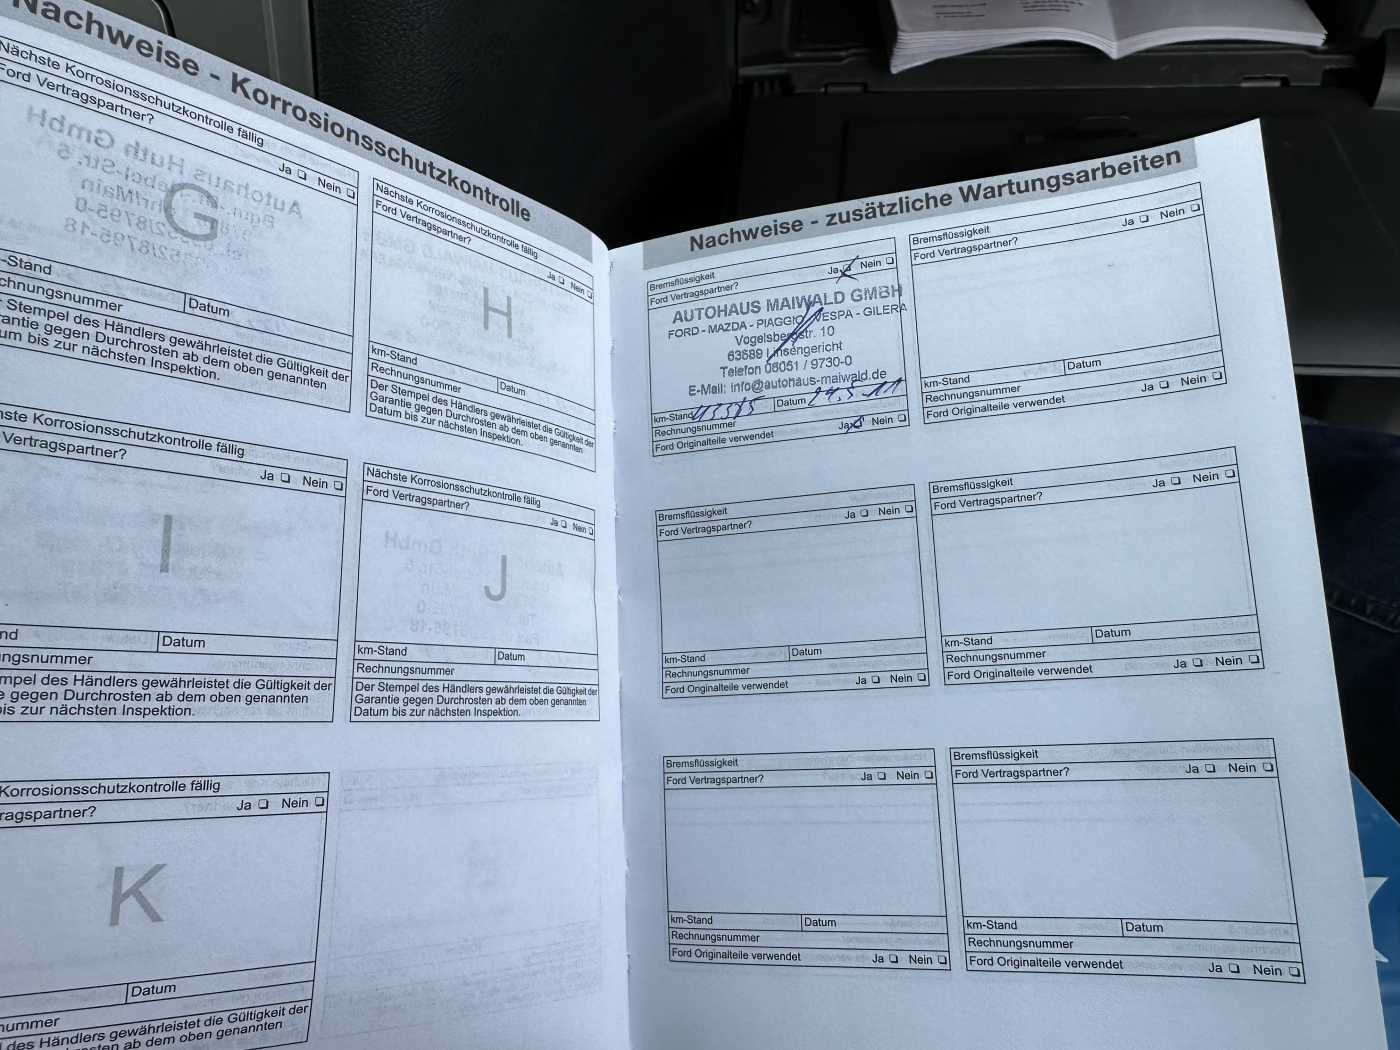 Nachweise - Korrosionsschutzkontrolle
Nächste Korrosionsschutzkontrolle fällig
Ford Vertragspartner?
Ja ❑ Nein ❑
G
-Stand
Datum
chnungsnummer
Stempel des Händlers gewährleistet die Gültigkeit der
rantie gegen Durchrosten ab dem oben genannten
tum bis zur nächsten Inspektion.
Nächste Korrosionsschutzkontrolle fällig
Ford Vertragspartner?
Ja ❑ Nein ❑
H
km-Stand
Rechnungsnummer
Datum
Der Stempel des Händlers gewährleistet die Gültigkeit der
Garantie gegen Durchrosten ab dem oben genannten
Datum bis zur nächsten Inspektion.
hste Korrosionsschutzkontrolle fällig
Vertragspartner?
Ja ❑ Nein ❑
I
nd
Datum
ungsnummer
empel des Händlers gewährleistet die Gültigkeit der
e gegen Durchrosten ab dem oben genannten
bis zur nächsten Inspektion.
Nächste Korrosionsschutzkontrolle fällig
Ford Vertragspartner?
Ja ❑ Nein ❑
J
km-Stand
Datum
Rechnungsnummer
Der Stempel des Händlers gewährleistet die Gültigkeit der
Garantie gegen Durchrosten ab dem oben genannten
Datum bis zur nächsten Inspektion.
Korrosionsschutzkontrolle fällig
ragspartner?
Ja ❑ Nein ❑
K
Datum
nummer
des Händlers gewährleistet die Gültigkeit der
gegen Durchrosten ab dem oben genannten
Nachweise - zusätzliche Wartungsarbeiten
Bremsflüssigkeit
Ford Vertragspartner?
Ja ❑ Nein ❑
AUTOHAUS MAIWALD GMBH
FORD - MAZDA - PIAGGIO - VESPA - GILERA
Vogelsbergstr. 10
63589 Linsengericht
Telefon 06051 / 9730-0
E-Mail: info@autohaus-maiwald.de
km-Stand
Datum 24.5.11
Rechnungsnummer
Ford Originalteile verwendet
Ja ❑ Nein ❑
Bremsflüssigkeit
Ford Vertragspartner?
Ja ❑ Nein ❑
km-Stand
Datum
Rechnungsnummer
Ford Originalteile verwendet
Ja ❑ Nein ❑
Bremsflüssigkeit
Ford Vertragspartner?
Ja ❑ Nein ❑
km-Stand
Datum
Rechnungsnummer
Ford Originalteile verwendet
Ja ❑ Nein ❑
Bremsflüssigkeit
Ford Vertragspartner?
Ja ❑ Nein ❑
km-Stand
Datum
Rechnungsnummer
Ford Originalteile verwendet
Ja ❑ Nein ❑
Bremsflüssigkeit
Ford Vertragspartner?
Ja ❑ Nein ❑
km-Stand
Datum
Rechnungsnummer
Ford Originalteile verwendet
Ja ❑ Nein ❑
Bremsflüssigkeit
Ford Vertragspartner?
Ja ❑ Nein ❑
km-Stand
Datum
Rechnungsnummer
Ford Originalteile verwendet
Ja ❑ Nein ❑